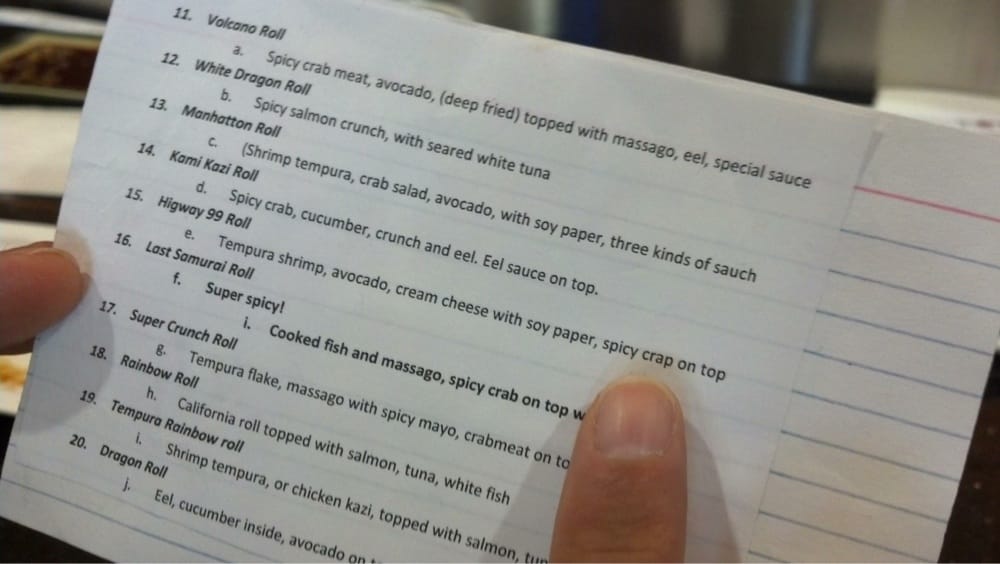 11. Volcano Roll
a. Spicy crab meat, avocado, (deep fried) topped with massago, eel, special sauce
12. White Dragon Roll
b. Spicy salmon crunch, with seared white tuna
13. Manhatton Roll
c. (Shrimp tempura, crab salad, avocado, with soy paper, three kinds of sauch
14. Kami Kazi Roll
d. Spicy crab, cucumber, crunch and eel. Eel sauce on top.
15. Higway 99 Roll
e. Tempura shrimp, avocado, cream cheese with soy paper, spicy crap on top
16. Last Samurai Roll
f. Super spicy!
i. Cooked fish and massago, spicy crab on top
17. Super Crunch Roll
g. Tempura flake, massago with spicy mayo, crabmeat on
18. Rainbow Roll
h. California roll topped with salmon, tuna, white fish
19. Tempura Rainbow roll
i. Shrimp tempura, or chicken kazi, topped with salmon,
20. Dragon Roll
j. Eel, cucumber inside, avocado on